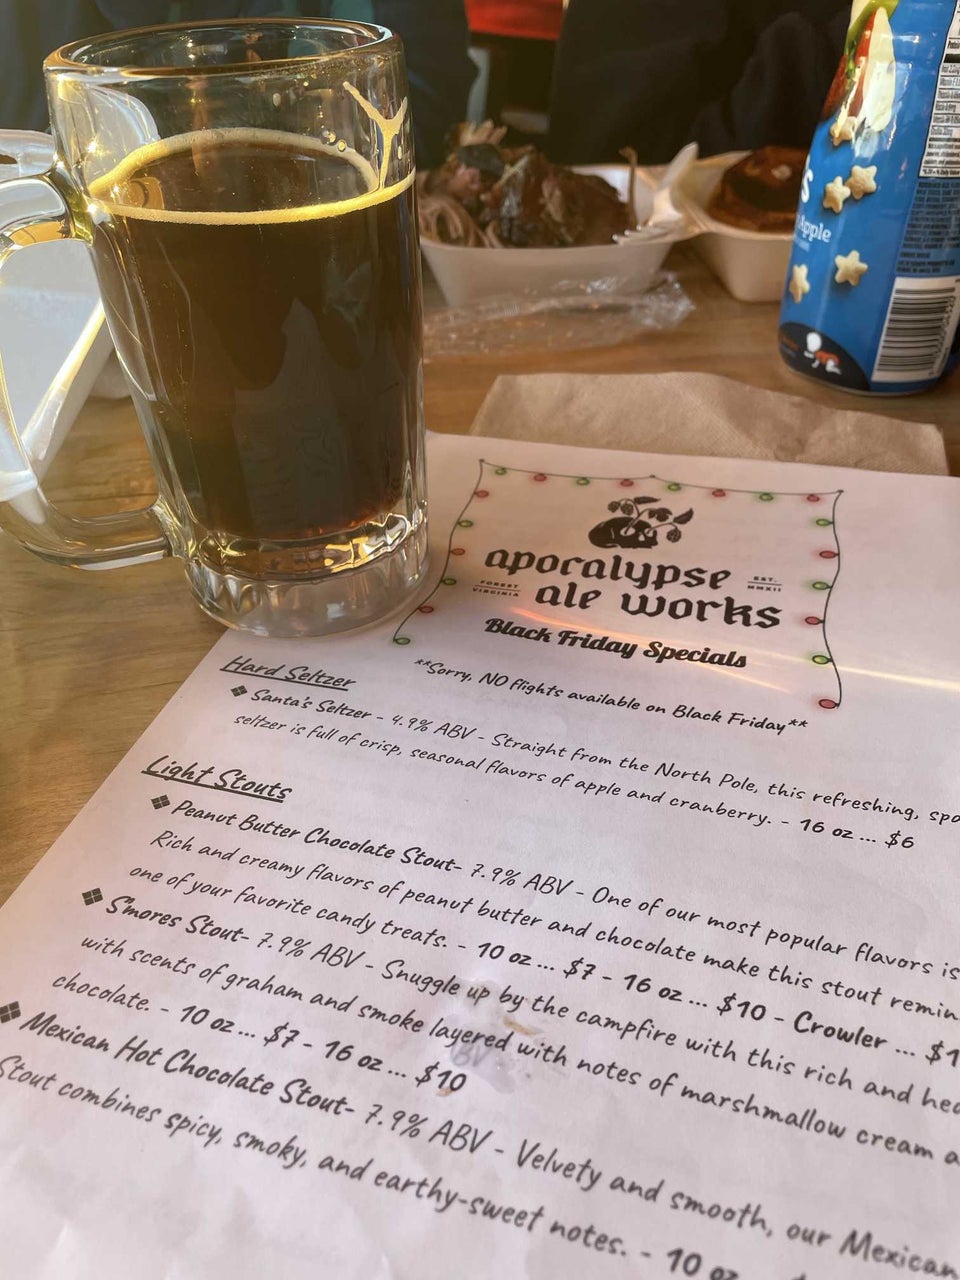 Apple
apocalypse
ale works
FOREST
VIRGINIA
EST.
MMXII
Black Friday Specials
**Sorry, NO flights available on Black Friday**
Hard Seltzer
❖ Santa's Seltzer - 4.9% ABV - Straight from the North Pole, this refreshing,
seltzer is full of crisp, seasonal flavors of apple and cranberry. - 16 oz ... $6
Light Stouts
❖ Peanut Butter Chocolate Stout- 7.9% ABV - One of our most popular flavors is
Rich and creamy flavors of peanut butter and chocolate make this stout remin
one of your favorite candy treats. - 10 oz ... $7 - 16 oz ... $10 - Crowler ... $1
❖ S'mores Stout- 7.9% ABV - Snuggle up by the campfire with this rich and hea
with scents of graham and smoke layered with notes of marshmallow cream a
chocolate. - 10 oz ... $7 - 16 oz ... $10
❖ Mexican Hot Chocolate Stout- 7.9% ABV - Velvety and smooth, our Mexican
Stout combines spicy, smoky, and earthy-sweet notes. - 10 oz